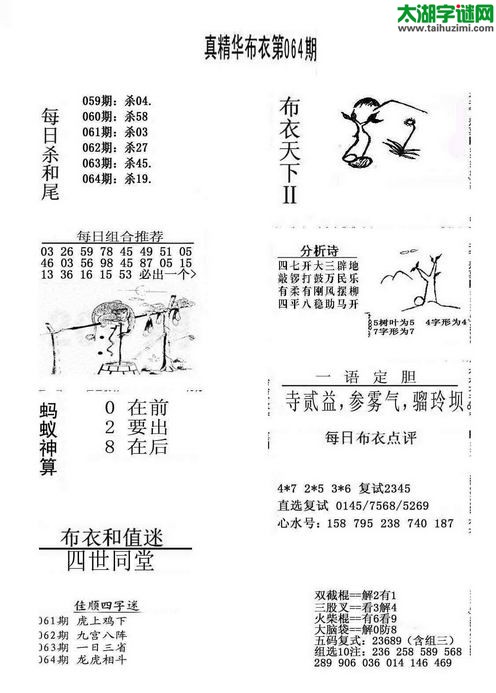 太湖字谜网
www.taihuzimi.com
真精华布衣第064期
每日杀和尾
059期：杀04.
060期：杀58
061期：杀03
062期：杀27
063期：杀45.
064期：杀19.
布衣天下II
每日组合推荐
03 26 59 78 45 49 51 05
46 03 56 98 45 87 05 15
13 36 16 15 53 必出一个>
分析诗
四七开大三辟地
敲锣打鼓万民乐
有柔有刚风摆柳
四平八稳助马开
5树叶为5 4字形为4
7字形为7
蚂蚁神算
0 在前
2 要出
8 在后
一语定胆
寺贰益,参雾气,骝玲坝
每日布衣点评
4*7 2*5 3*6 复试2345
直选复试 0145/7568/5269
心水号: 158 795 238 740 187
布衣和值迷
四世同堂
佳顺四字迷
061期 虎上鸡下
062期 九宫八阵
063期 一日三省
064期 龙虎相斗
双截棍==解2有1
三股叉==看3解4
火柴棍==有6看9
大脑袋==解0防8
五码复式: 23689（含组三）
组选10注: 236 258 589 568
289 906 036 014 146 469